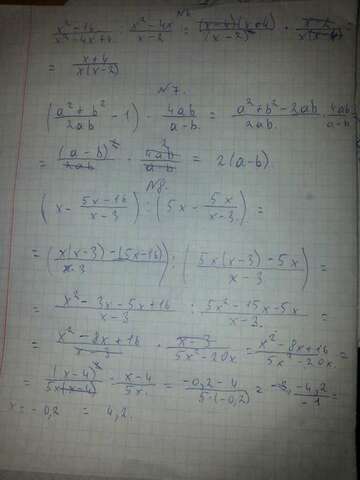 N6
x²-16 / x²-4x+4 : x²-4x / x-2 = (x-4)(x+4) / (x-2)² · x-2 / x(x-4) =
= x+4 / x(x-2)
N7.
(a²+b² / 2ab - 1) · 4ab / a-b = a²+b²-2ab / 2ab · 4ab / a-b =
= (a-b)² / 2ab · 4ab / a-b = 2(a-b).
N8.
(x - 5x-16 / x-3) : (5x - 5x / x-3) =
= (x(x-3)-(5x-16) / x-3) : (5x(x-3)-5x / x-3) =
= x²-3x-5x+16 / x-3 : 5x²-15x-5x / x-3 =
= x²-8x+16 / x-3 · x-3 / 5x²-20x = x²-8x+16 / 5x²-20x =
= (x-4)² / 5x(x-4) = x-4 / 5x = -0,2-4 / 5·(-0,2) = -4,2 / -1 =
x=-0,2 = 4,2.